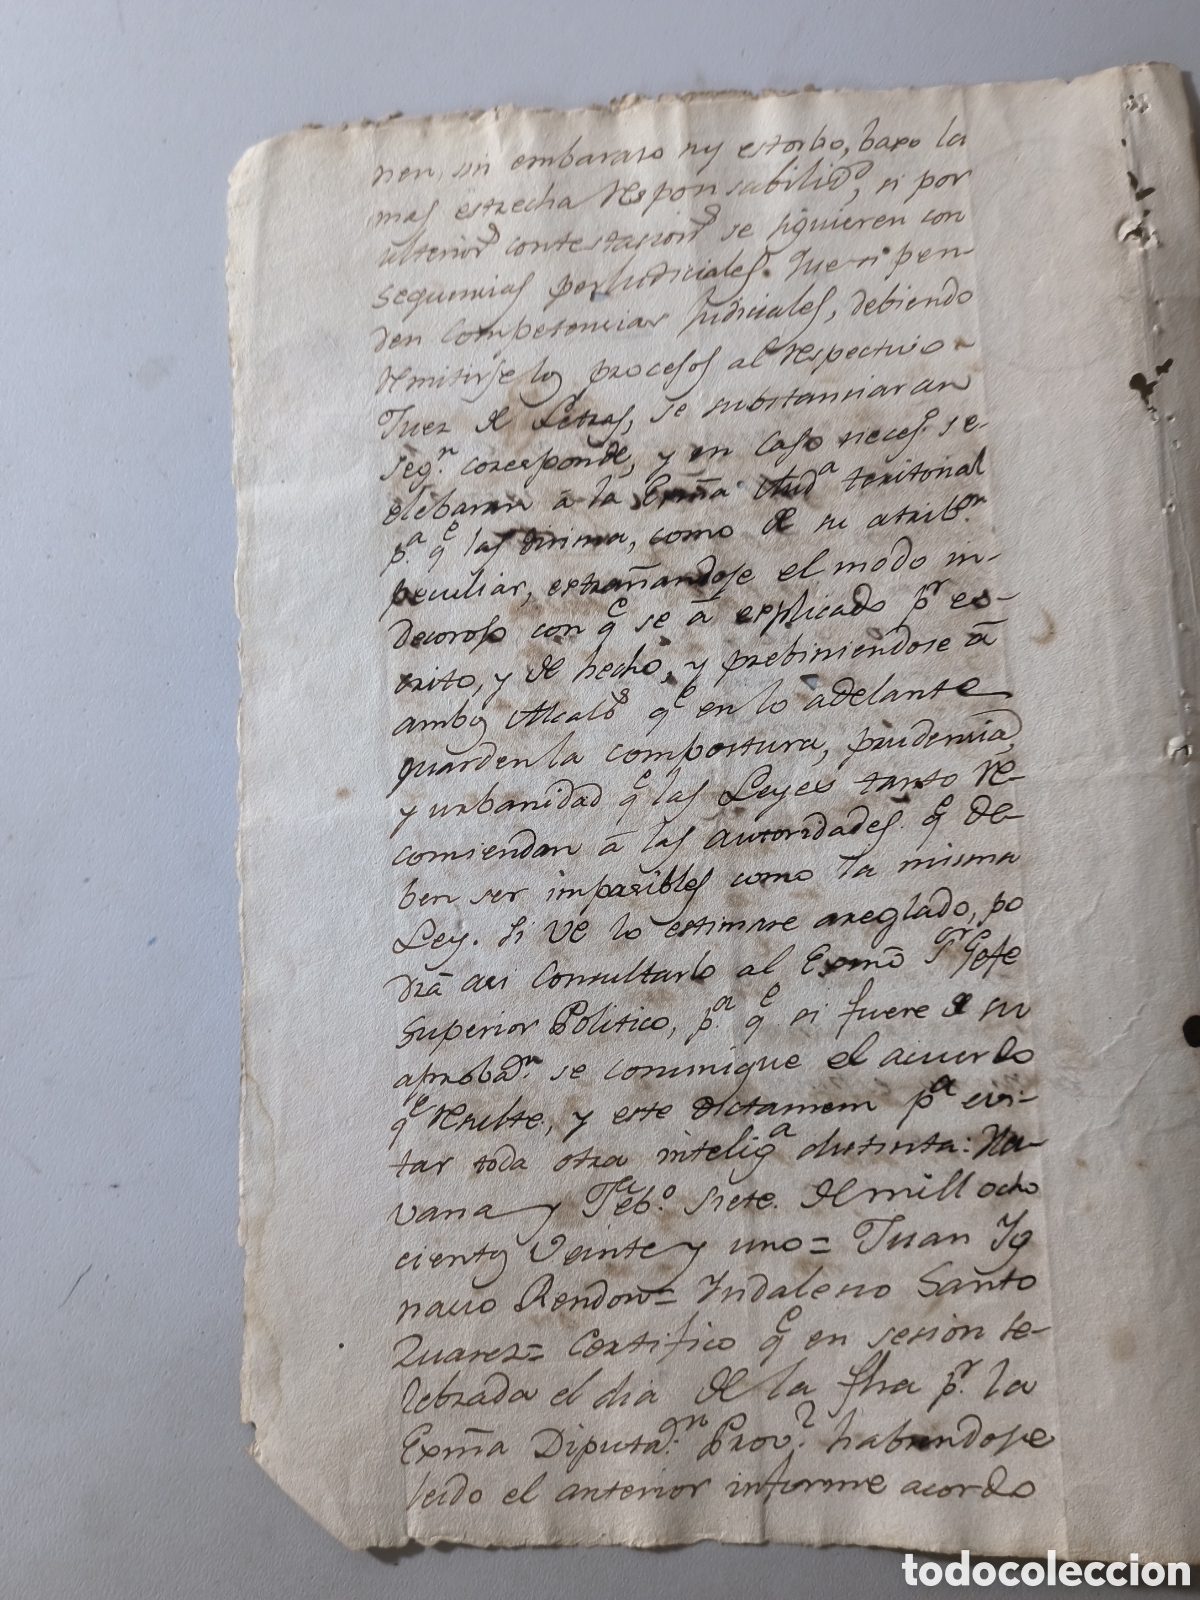 nen, sin embaraso ny estorbo, baxo la
mas estrecha responsabilidᵈ, si por
ulteriorˢ contestasionˢ se siguieren con
sequencias perJudiciales. Que si pen-
den competencias Judiciales, debiendo
remitirse los procesos al respectivo
Juez de Letras, se substanciaran
segⁿ. corresponde, y en caso neces.º se
elebaran â la Exmã Audᵃ teritorial
p.ᵃ qᵉ las dirima, como de su atribⁿ.
peculiar, estrañandose el modo in-
decoroso con qᵉ se â explicado pʳ es-
crito, y de hecho, y prebiniendose â
ambos Alcalˢ qᵉ en lo adelante
guarden la compostura, prudencia,
y urbanidad qᵉ las Leyes tanto re-
comiendan â las autoridades qᵉ de-
ben ser impasibles como la misma
Ley. Si VE lo estimare areglado, po
drâ asi consultarlo al Exmõ Sʳ Gefe
Superior Politico, p.ᵃ qᵉ si fuere de su
aprobaⁿ. se comunique el acuerdo
qᵉ resulte, y este dictamen pᵃ evi-
tar toda otra inteligᵃ distinta: Ha-
vana y Feb.º siete de mill ocho
cientos veinte y uno = Juan Yg
nacio Rendon = Yndalecio Santo
Zuarez = Certifico qᵉ en sesion se-
lebrada el dia de la fha p.ʳ la
Exmã Diputa.ⁿ Prov.ˡ habiendose
leido el anterior informe acordo
todocoleccion